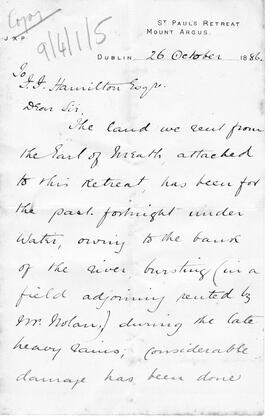 Copy
9/4/1/5
J. X. P.
St Paul's Retreat
Mount Argus.
Dublin, 26 October 1886.
To
Hamilton Esqr.
Dear Sir,
The land we rent from
the Earl of Meath, attached
to this Retreat, has been for
the past fortnight under
water, owing to the bank
of the river bursting (in a
field adjoining rented by
Mr. Nolan,) during the late
heavy rains; considerable
damage has been done